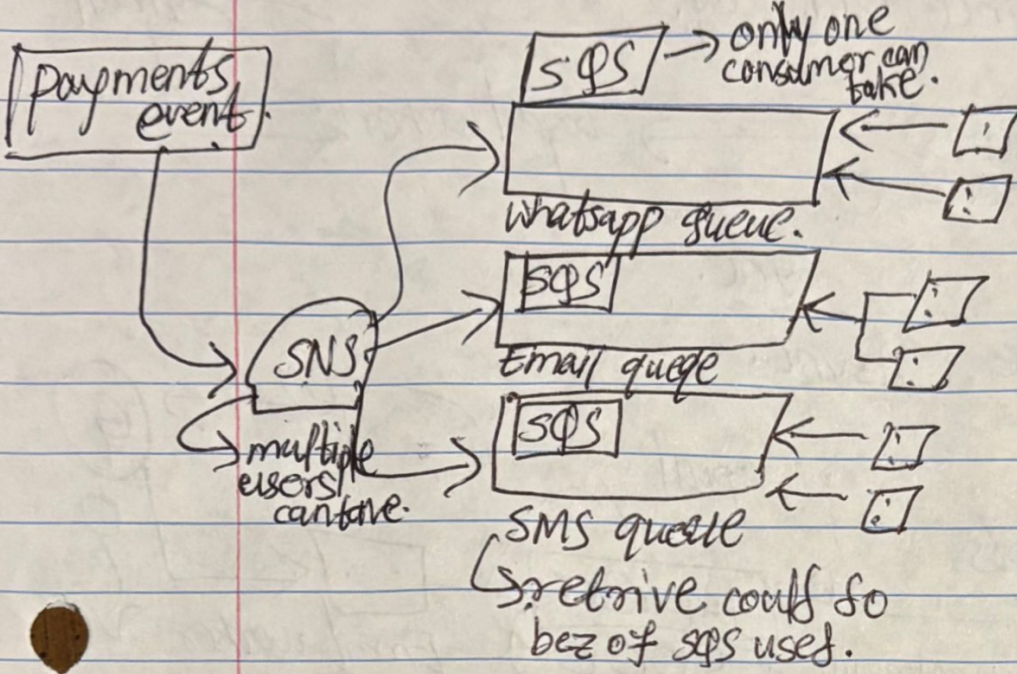 payments
event.
SQS → only one
consumer can
take.
whatsapp queue.
SQS
Email queqe
SNS
multiple
users
SQS
SMS queue
retrive could do
bez of SQS used.